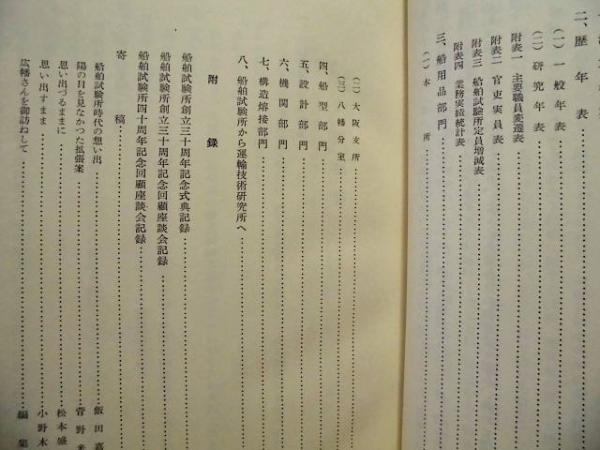 二、歴年表
(一) 一般年表
(二) 研究年表
附表一 主要職員変遷表
附表二 官吏実員表
附表三 船舶試験所定員増減表
附表四 業務実績統計表
三、船用品部門
(一) 本所
(二) 大阪支所
(三) 八幡分室
四、船型部門
五、設計部門
六、機関部門
七、構造熔接部門
八、船舶試験所から運輸技術研究所へ
附録
船舶試験所創立三十周年記念式典記録
船舶試験所創立三十周年記念回顧座談会記録
船舶試験所四十周年記念回顧座談会記録
寄稿
船舶試験所時代の想い出 飯田嘉
陽の目を見なかつた拡張案 菅野
思い出づるままに 松本盛
思い出すまま 小野木
広幡さんを御訪ねして 編集